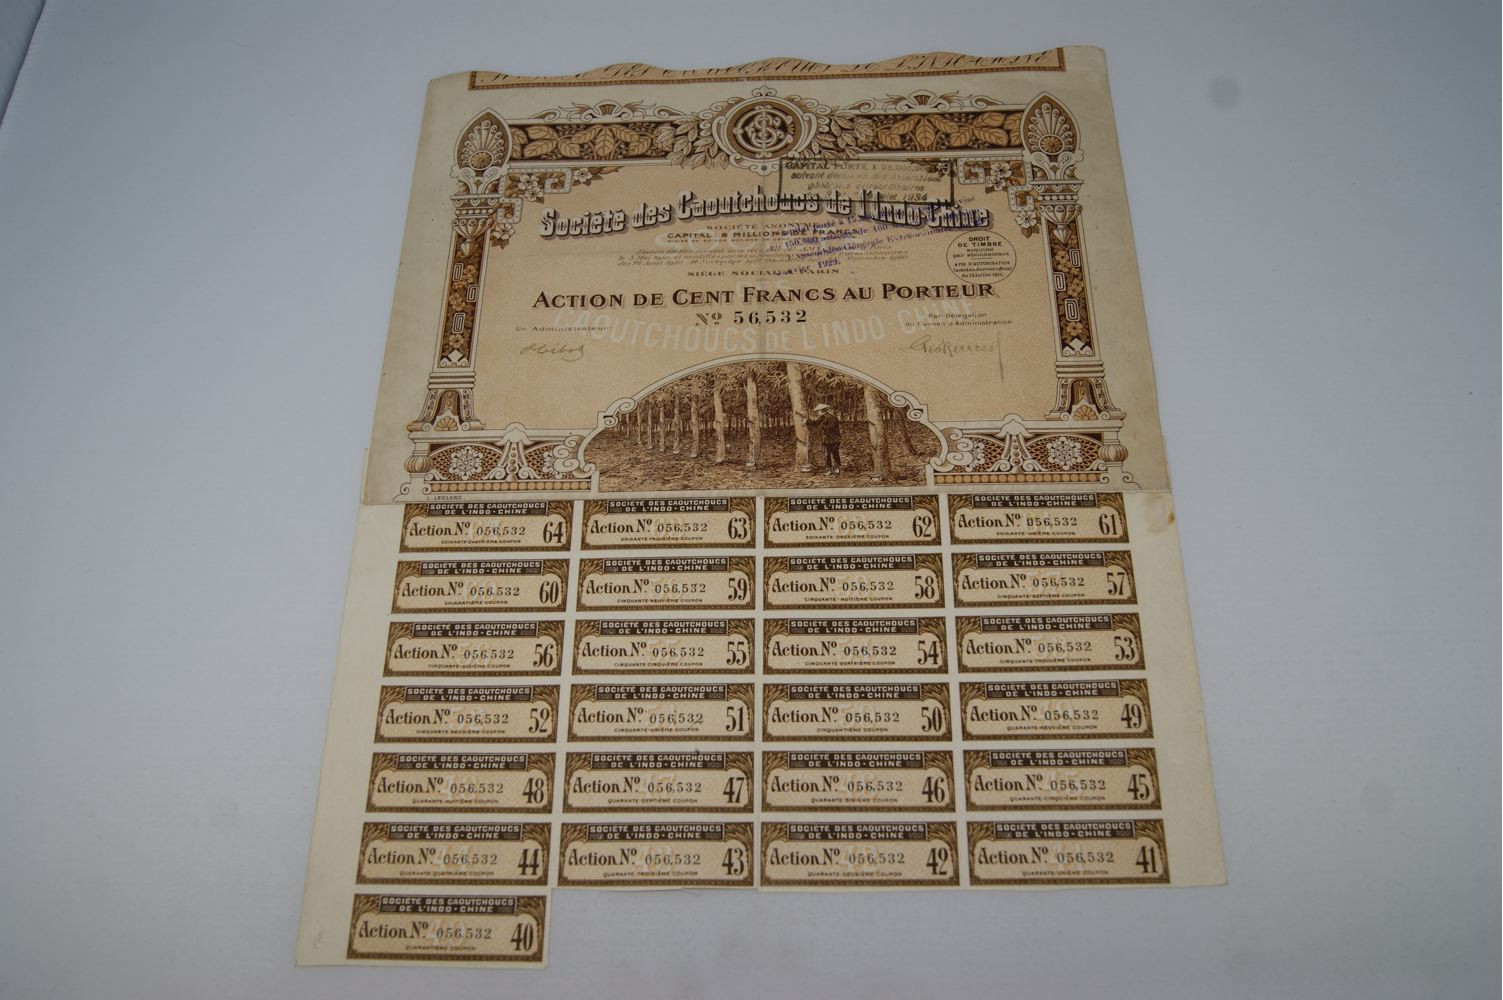 CAPITAL PORTÉ À
suivant décisions des Assemblées
générales extraordinaires
1934
Société des Caoutchoucs de l'Indo-Chine
SOCIÉTÉ ANONYME
CAPITAL: 8 MILLIONS DE FRANCS
DROIT
DE TIMBRE
acquitté
par abonnement
AVIS D'AUTORISATION
SIÈGE SOCIAL: PARIS
ACTION DE CENT FRANCS AU PORTEUR
No 56,532
Un Administrateur
Par Délégation
du Conseil d'Administration
CAOUTCHOUCS DE L'INDO-CHINE
L. LECLERC
SOCIÉTÉ DES CAOUTCHOUCS
DE L'INDO-CHINE
Action No 056,532 64
SOIXANTE-QUATRIÈME COUPON
SOCIÉTÉ DES CAOUTCHOUCS
DE L'INDO-CHINE
Action No 056,532 63
SOIXANTE-TROISIÈME COUPON
SOCIÉTÉ DES CAOUTCHOUCS
DE L'INDO-CHINE
Action No 056,532 62
SOIXANTE-DEUXIÈME COUPON
SOCIÉTÉ DES CAOUTCHOUCS
DE L'INDO-CHINE
Action No 056,532 61
SOIXANTE-UNIÈME COUPON
SOCIÉTÉ DES CAOUTCHOUCS
DE L'INDO-CHINE
Action No 056,532 60
SOIXANTIÈME COUPON
SOCIÉTÉ DES CAOUTCHOUCS
DE L'INDO-CHINE
Action No 056,532 59
CINQUANTE-NEUVIÈME COUPON
SOCIÉTÉ DES CAOUTCHOUCS
DE L'INDO-CHINE
Action No 056,532 58
CINQUANTE-HUITIÈME COUPON
SOCIÉTÉ DES CAOUTCHOUCS
DE L'INDO-CHINE
Action No 056,532 57
CINQUANTE-SEPTIÈME COUPON
SOCIÉTÉ DES CAOUTCHOUCS
DE L'INDO-CHINE
Action No 056,532 56
CINQUANTE-SIXIÈME COUPON
SOCIÉTÉ DES CAOUTCHOUCS
DE L'INDO-CHINE
Action No 056,532 55
CINQUANTE-CINQUIÈME COUPON
SOCIÉTÉ DES CAOUTCHOUCS
DE L'INDO-CHINE
Action No 056,532 54
CINQUANTE-QUATRIÈME COUPON
SOCIÉTÉ DES CAOUTCHOUCS
DE L'INDO-CHINE
Action No 056,532 53
CINQUANTE-TROISIÈME COUPON
SOCIÉTÉ DES CAOUTCHOUCS
DE L'INDO-CHINE
Action No 056,532 52
CINQUANTE-DEUXIÈME COUPON
SOCIÉTÉ DES CAOUTCHOUCS
DE L'INDO-CHINE
Action No 056,532 51
CINQUANTE-UNIÈME COUPON
SOCIÉTÉ DES CAOUTCHOUCS
DE L'INDO-CHINE
Action No 056,532 50
CINQUANTIÈME COUPON
SOCIÉTÉ DES CAOUTCHOUCS
DE L'INDO-CHINE
Action No 056,532 49
QUARANTE-NEUVIÈME COUPON
SOCIÉTÉ DES CAOUTCHOUCS
DE L'INDO-CHINE
Action No 056,532 48
QUARANTE-HUITIÈME COUPON
SOCIÉTÉ DES CAOUTCHOUCS
DE L'INDO-CHINE
Action No 056,532 47
QUARANTE-SEPTIÈME COUPON
SOCIÉTÉ DES CAOUTCHOUCS
DE L'INDO-CHINE
Action No 056,532 46
QUARANTE-SIXIÈME COUPON
SOCIÉTÉ DES CAOUTCHOUCS
DE L'INDO-CHINE
Action No 056,532 45
QUARANTE-CINQUIÈME COUPON
SOCIÉTÉ DES CAOUTCHOUCS
DE L'INDO-CHINE
Action No 056,532 44
QUARANTE-QUATRIÈME COUPON
SOCIÉTÉ DES CAOUTCHOUCS
DE L'INDO-CHINE
Action No 056,532 43
QUARANTE-TROISIÈME COUPON
SOCIÉTÉ DES CAOUTCHOUCS
DE L'INDO-CHINE
Action No 056,532 42
QUARANTE-DEUXIÈME COUPON
SOCIÉTÉ DES CAOUTCHOUCS
DE L'INDO-CHINE
Action No 056,532 41
QUARANTE-UNIÈME COUPON
SOCIÉTÉ DES CAOUTCHOUCS
DE L'INDO-CHINE
Action No 056,532 40
QUARANTIÈME COUPON